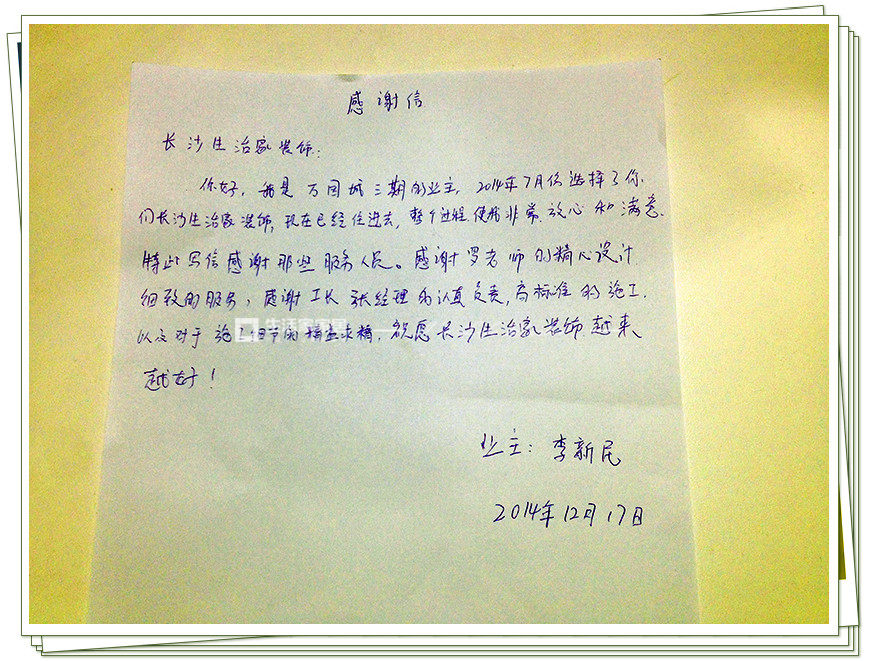 感谢信
长沙生治家装饰:
你好,我是万国城三期的业主,2014年7月份选择了你
们长沙生治家装饰,现在已经住进去,整个过程使我非常放心和满意.
特此写信感谢那些服务人员。感谢罗老师的精心设计
细致的服务,感谢工长张经理的认真负责,高标准的施工.
以及对于施工细节的精益求精,祝愿长沙生治家装饰越来
越好!
业主:李新民
2014年12月17日